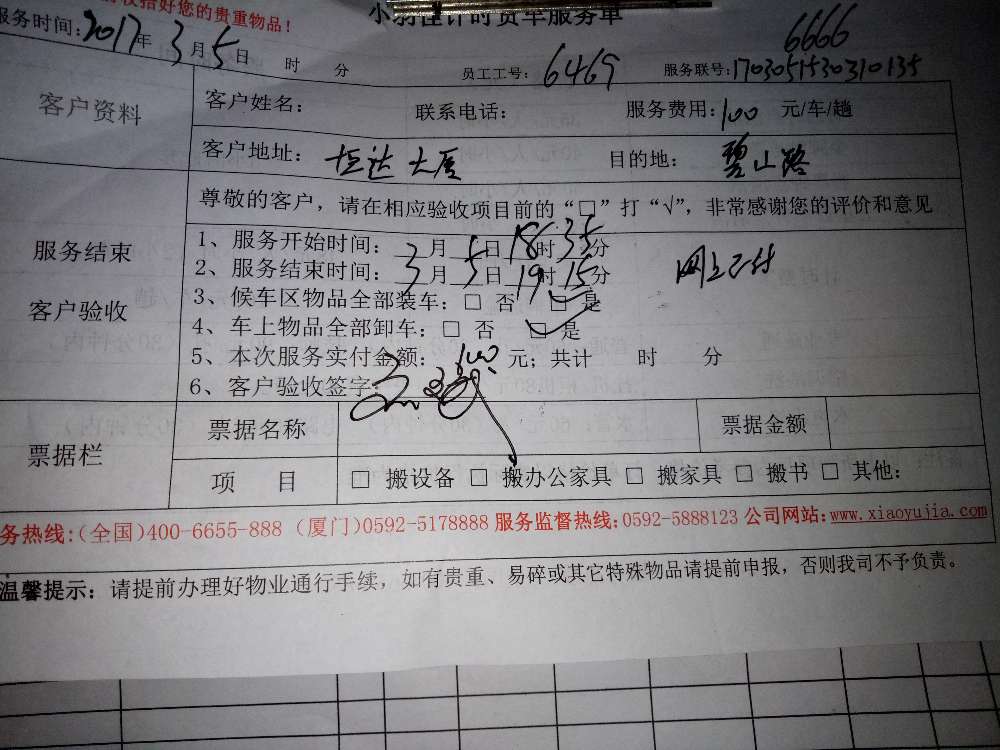 收拾好您的贵重物品！
小羽佳计时货车服务单
服务时间：2017年 3月 5日 时 分
6666
员工工号：6469 服务联号：1703051530310135
客户资料
客户姓名： 联系电话： 服务费用：100 元/车/趟
客户地址：恒达大厦 目的地：碧山路
服务结束
客户验收
尊敬的客户，请在相应验收项目前的“□”打“√”，非常感谢您的评价和意见
1、服务开始时间：3月5日18时35分
2、服务结束时间：3月5日19时15分
网上已付
3、候车区物品全部装车：□ 否 □ 是
4、车上物品全部卸车：□ 否 □ 是
5、本次服务实付金额：100元；共计 时 分
6、客户验收签字：
票据栏
票据名称 票据金额
项 目 □ 搬设备 □ 搬办公家具 □ 搬家具 □ 搬书 □ 其他：
务热线：(全国)400-6655-888 (厦门)0592-5178888 服务监督热线：0592-5888123 公司网站：www.xiaoyujia.com
温馨提示：请提前办理好物业通行手续，如有贵重、易碎或其它特殊物品请提前申报，否则我司不予负责。